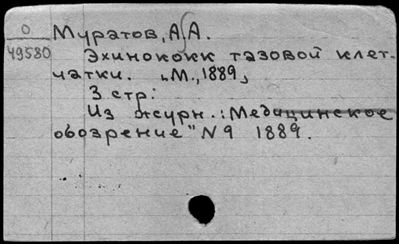 О
49580
Муратов, А.А.
Эхинококк тазовой клет-
чатки. „М., 1889,
3 стр:
Из журн.: Медицинское
обозрение" N9 1889.